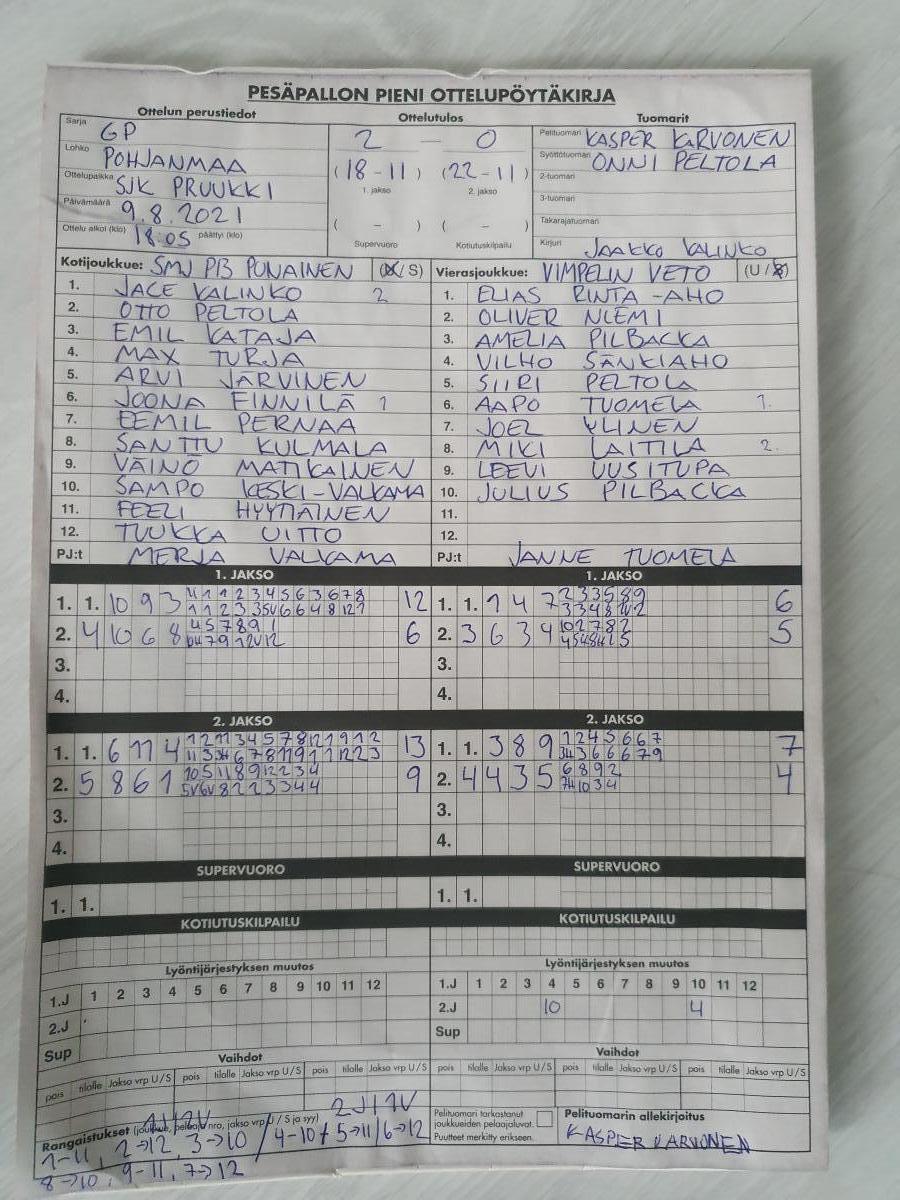 PESÄPALLON PIENI OTTELUPÖYTÄKIRJA
Ottelun perustiedot Ottelutulos Tuomarit
Sarja GP
Lohko POHJANMAA
Ottelupaikka SJK PRUUKKI
Päivämäärä 9.8.2021
Ottelu alkoi (klo) 18:05 päättyi (klo)
2 — 0
(18-11) (22-11)
1. jakso 2. jakso
( - ) ( - )
Supervuoro Kotiutuskilpailu
Pelituomari KASPER KARVONEN
Syöttötuomari ONNI PELTOLA
2-tuomari
3-tuomari
Takarajatuomari
Kirjuri JAAKKO VALINKO
Kotijoukkue: SMJ P13 PUNAINEN (U/S)
1. JACE VALINKO 2
2. OTTO PELTOLA
3. EMIL KATAJA
4. MAX TURJA
5. ARVI JÄRVINEN
6. JOONA FINNILÄ 1
7. EEMIL PERNAA
8. SANTTU KULMALA
9. VÄINÖ MATIKAINEN
10. SAMPO KESKI-VALKAMA
11. FEELI HYYTIÄINEN
12. TUUKKA UITTO
PJ:t MERJA VALKAMA
Vierasjoukkue: VIMPELIN VETO (U/S)
1. ELIAS RINTA-AHO
2. OLIVER NIEMI
3. AMELIA PILBACKA
4. VILHO SÄNKIAHO
5. SIIRI PELTOLA
6. AAPO TUOMELA 1.
7. JOEL YLINEN
8. MIKI LAITILA 2.
9. LEEVI UUSITUPA
10. JULIUS PILBACKA
11.
12.
PJ:t JANNE TUOMELA
1. JAKSO 1. JAKSO
1. 1. 10 9 3 12
2. 4 10 6 8 6
3.
4.
1. 1. 1 4 7 6
2. 3 6 3 4 5
3.
4.
2. JAKSO 2. JAKSO
1. 1. 6 11 4 13
2. 5 8 6 1 9
3.
4.
1. 1. 3 8 9 7
2. 4 4 3 5 4
3.
4.
SUPERVUORO SUPERVUORO
1. 1. 1. 1.
KOTIUTUSKILPAILU KOTIUTUSKILPAILU
Lyöntijärjestyksen muutos Lyöntijärjestyksen muutos
1.J 1 2 3 4 5 6 7 8 9 10 11 12
2.J
Sup
1.J 1 2 3 4 5 6 7 8 9 10 11 12
2.J 10 4
Sup
Vaihdot Vaihdot
pois tilalle Jakso vrp U/S pois tilalle Jakso vrp U/S pois tilalle Jakso vrp U/S
pois tilalle Jakso vrp U/S pois tilalle Jakso vrp U/S pois tilalle Jakso vrp U/S
Rangaistukset (joukkue, pelaaja nro, jakso vrp U/S ja syy) 2J1V
1-11, 2→12, 3→10 / 4-10 + 5→11 / 6→12
8→10, 9-11, 7→12
Pelituomari tarkastanut
joukkueiden pelaajaluvat.
Puutteet merkitty erikseen.
Pelituomarin allekirjoitus
KASPER KARVONEN